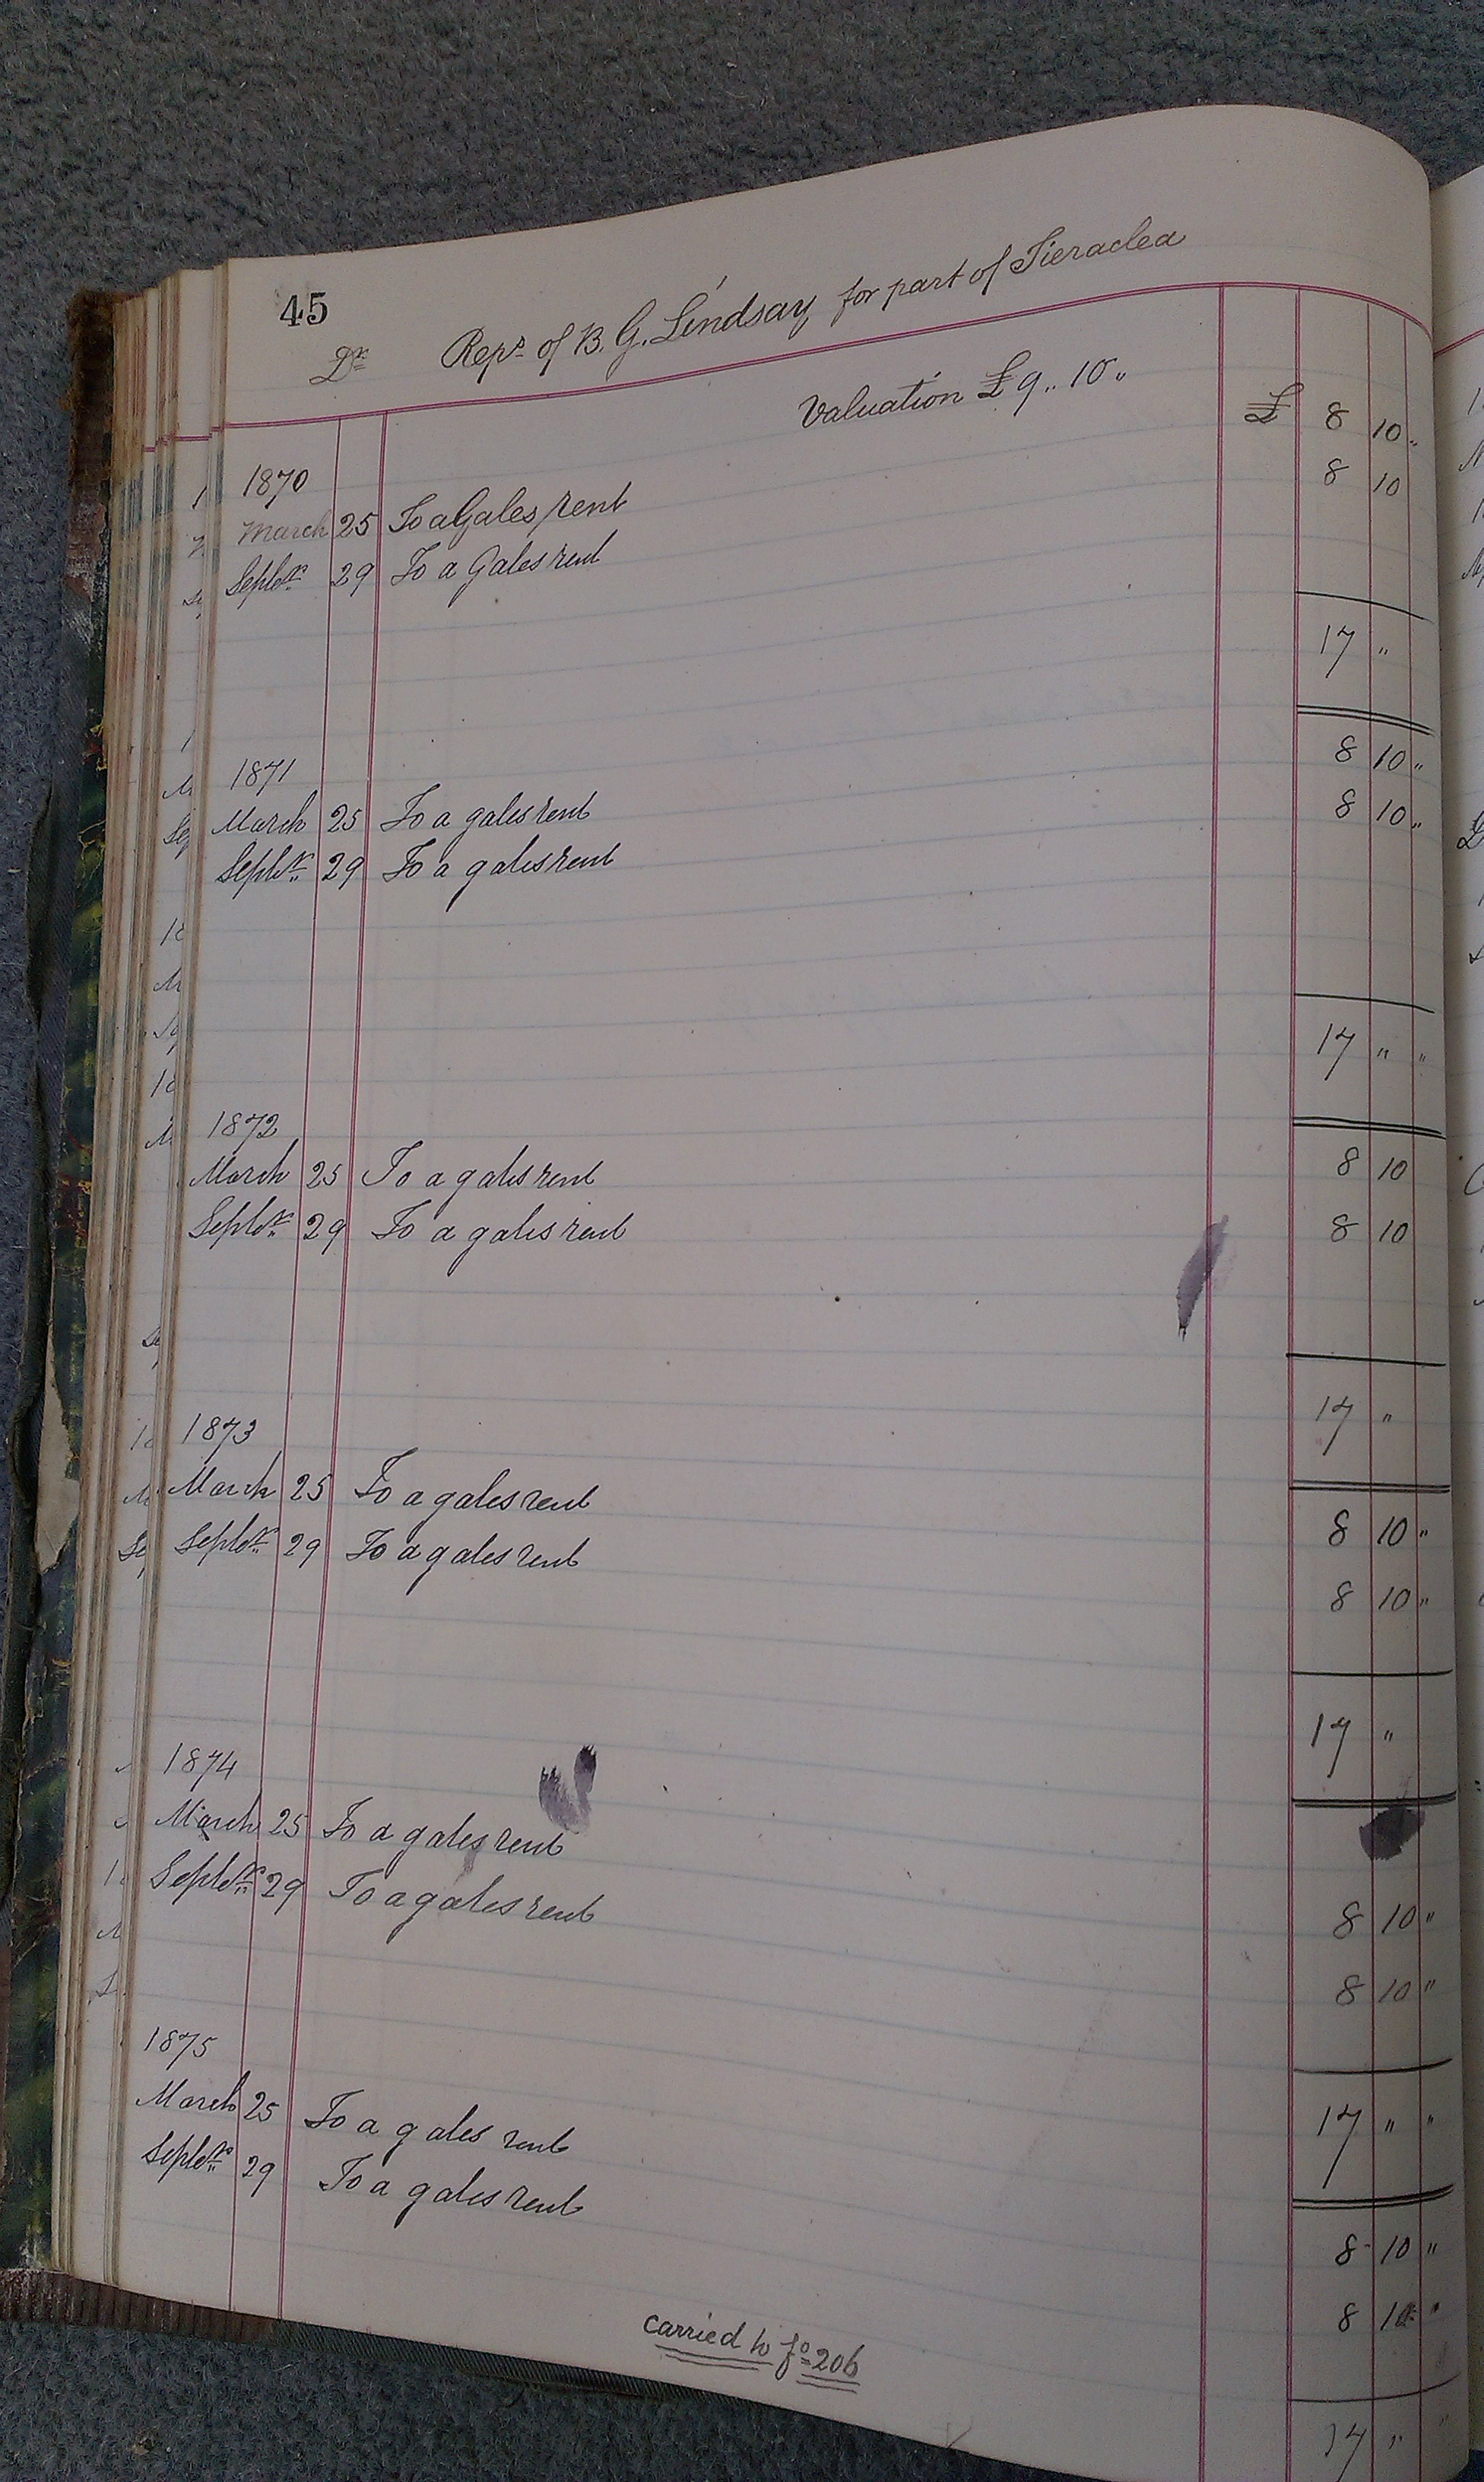 45
Dr Reps of B. G. Lindsay for part of Tieraclea
Valuation £9 .. 10 ..
1870
March 25 To a Gales rent £ 8 10 ..
Septr 29 To a Gales rent 8 10
17 "
1871
March 25 To a gales rent 8 10 ..
Septr 29 To a gales rent 8 10 ..
17 " "
1872
March 25 To a gales rent 8 10
Septr 29 To a gales rent 8 10
17 "
1873
March 25 To a gales rent 8 10 "
Septr 29 To a gales rent 8 10 "
17 "
1874
March 25 To a gales rent 8 10 "
Septr 29 To a gales rent 8 10 "
17 " "
1875
March 25 To a gales rent 8 10 "
Septr 29 To a gales rent 8 10 "
17 " "
carried to fo 206